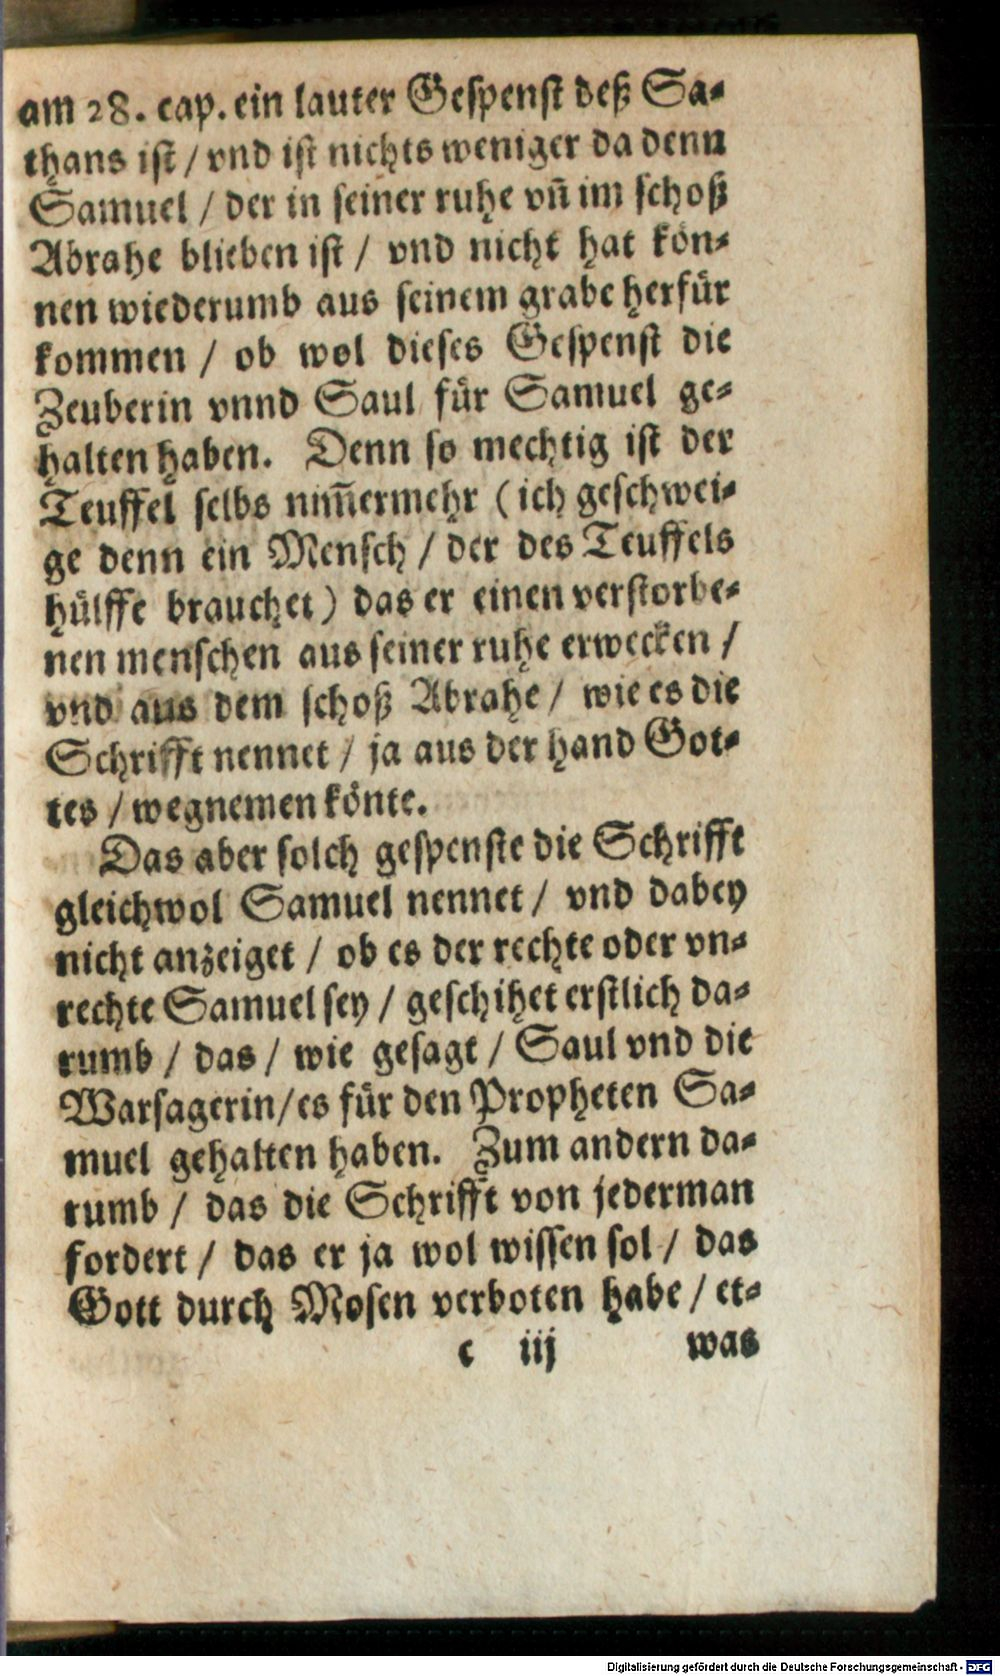 am 28. cap. ein lauter Gespenst deß Sa-
thans ist / vnd ist nichts weniger da denn
Samuel / der in seiner ruhe vñ im schoß
Abrahe blieben ist / vnd nicht hat kön-
nen wiederumb aus seinem grabe herfür
kommen / ob wol dieses Gespenst die
Zeuberin vnnd Saul für Samuel ge-
halten haben. Denn so mechtig ist der
Teuffel selbs nim̃ermehr (ich geschwei-
ge denn ein Mensch / der des Teuffels
hülffe brauchet) das er einen verstorbe-
nen menschen aus seiner ruhe erwecken /
vnd aus dem schoß Abrahe / wie es die
Schrifft nennet / ja aus der hand Got-
tes / wegnemen könte.
Das aber solch gespenste die Schrifft
gleichwol Samuel nennet / vnd dabey
nicht anzeiget / ob es der rechte oder vn-
rechte Samuel sey / geschihet erstlich da-
rumb / das / wie gesagt / Saul vnd die
Warsagerin/es für den Propheten Sa-
muel gehalten haben. Zum andern da-
rumb / das die Schrifft von jederman
fordert / das er ja wol wissen sol / das
Gott durch Mosen verboten habe / et-
c iij was
Digitalisierung gefördert durch die Deutsche Forschungsgemeinschaft - DFG